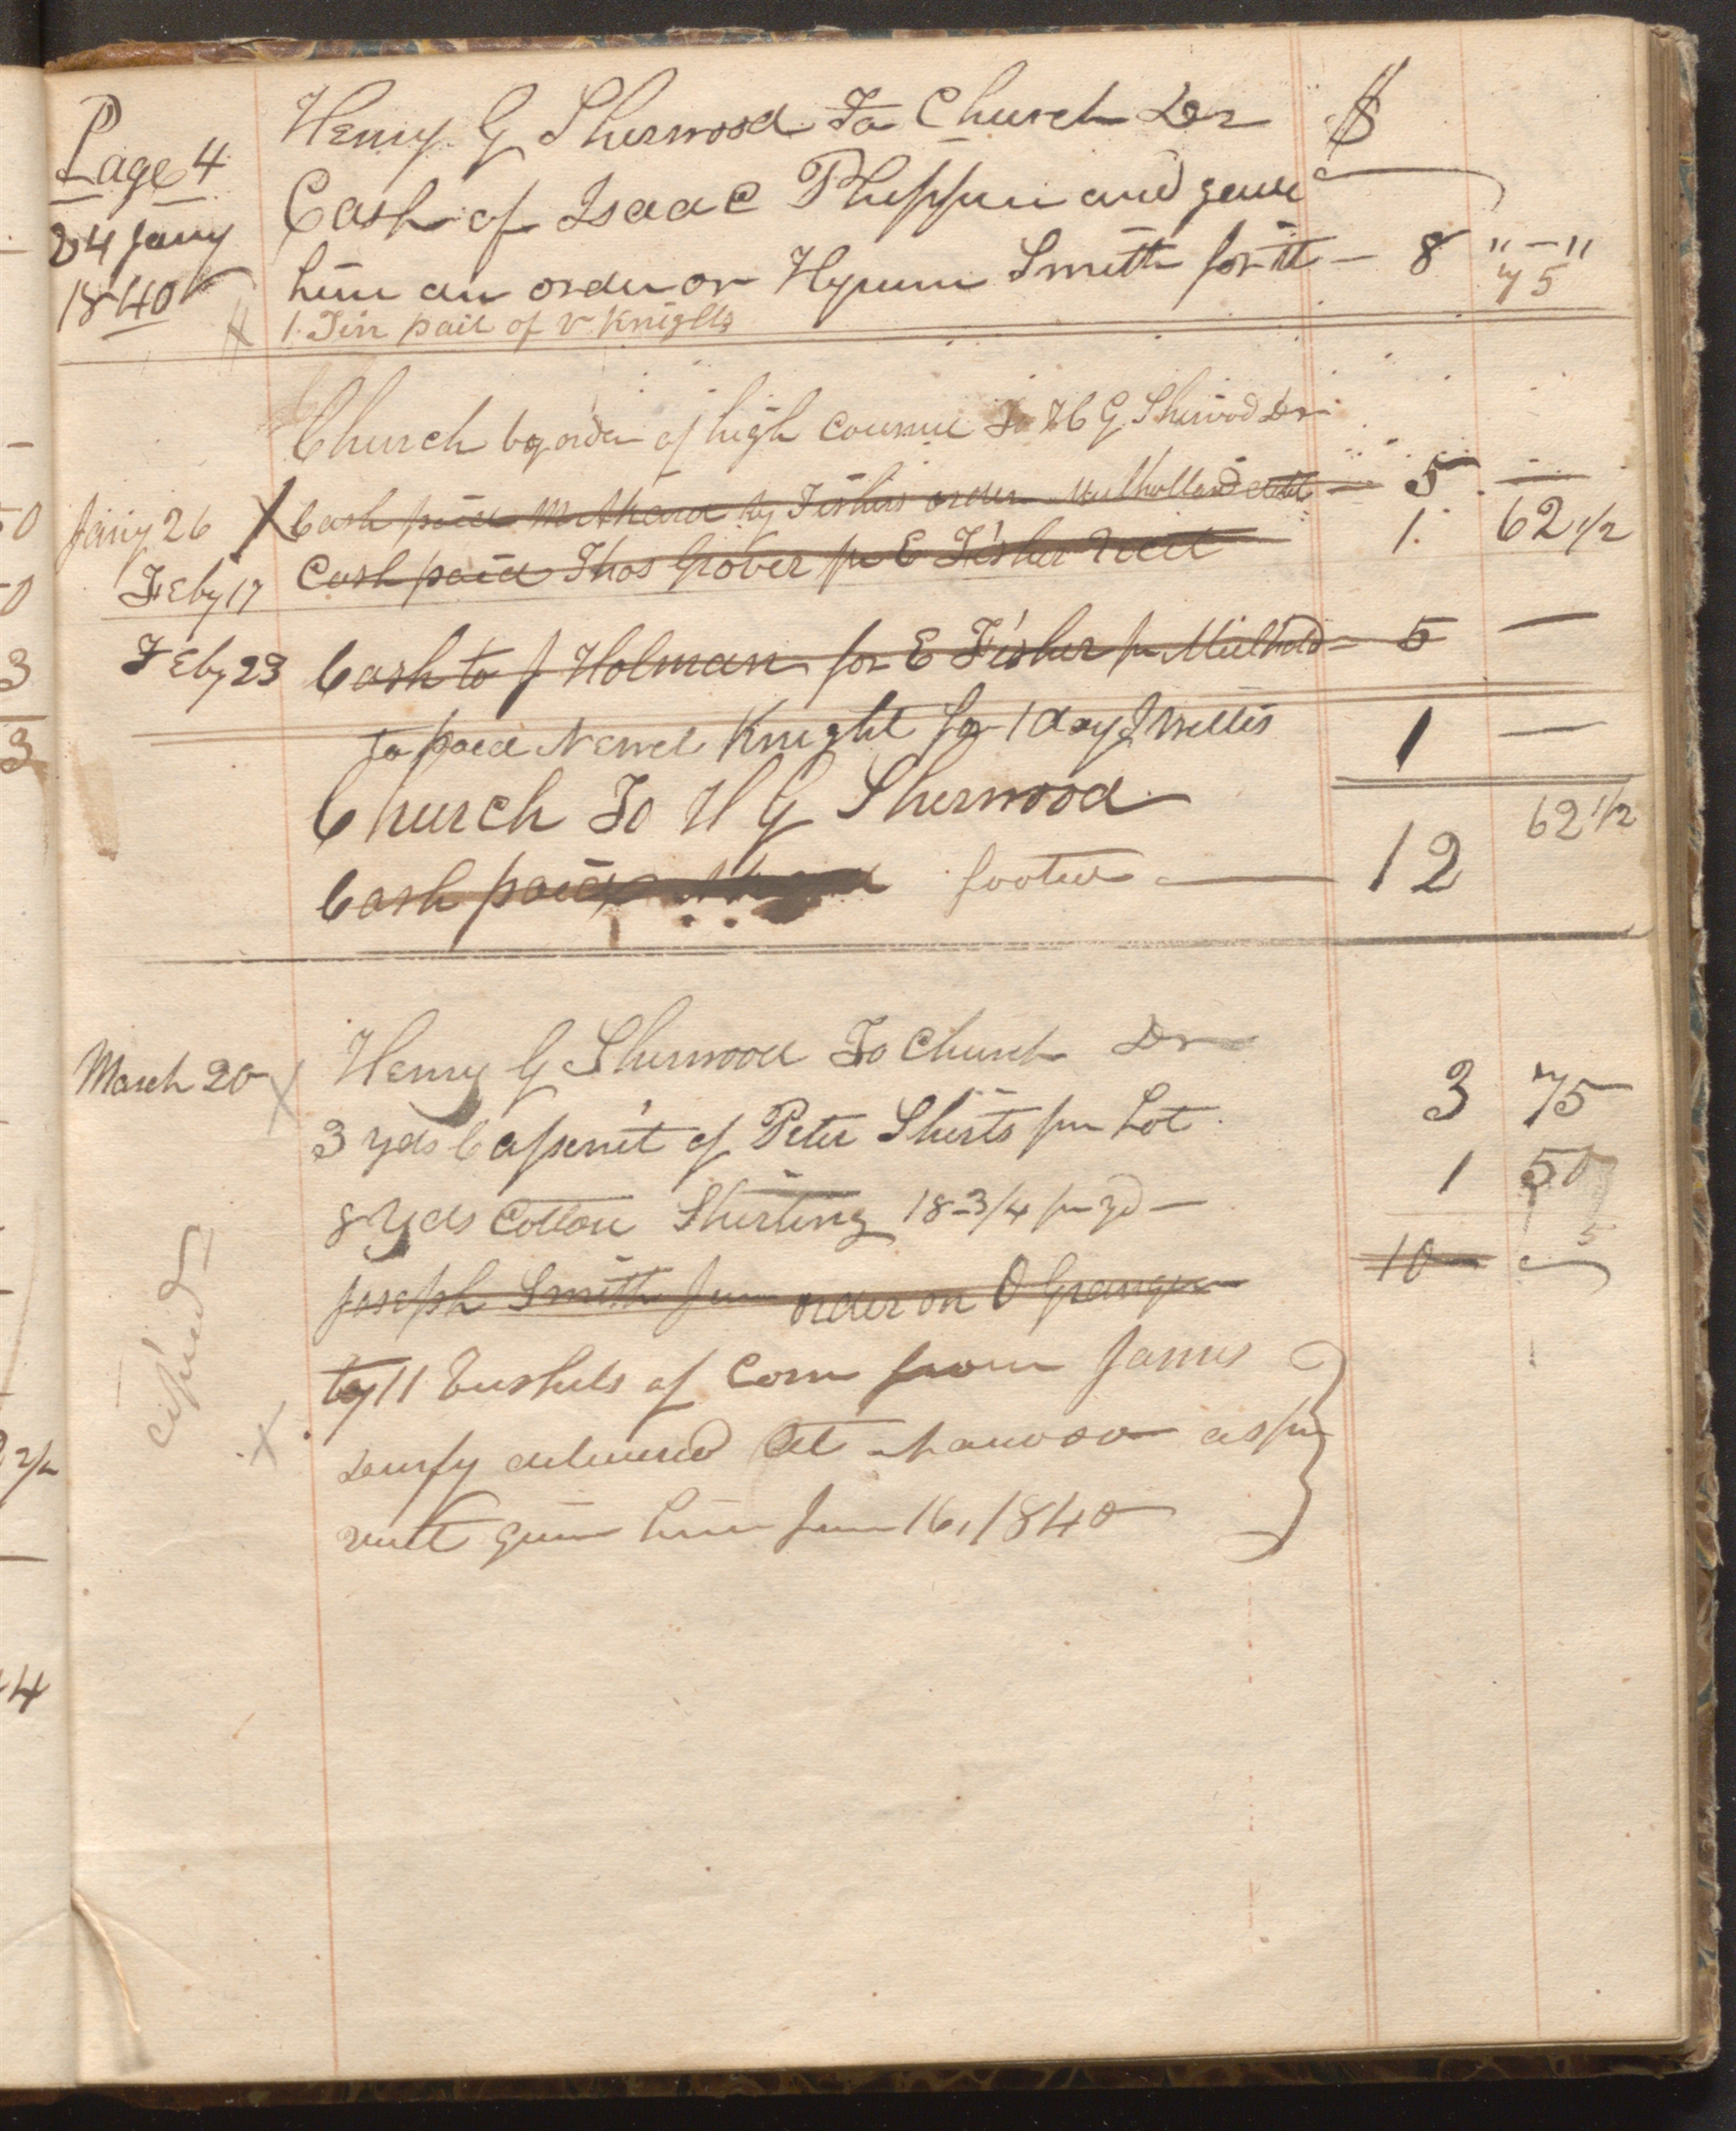 Page 4
24 Jany
1840
Henry G Sherwood To Church Dr $
Cash of Isaac Pheffuin and gave
him an order on Hyrum Smith for it — 8 "—"
1 Tin pail of v Knights 75
Church by order of high Council To H G Sherwood Dr
Jany 26 X Cash paid by Fishers order Mulholland — 5 —
Feby 17 Cash paid Thos Grover pr E Fisher Recit 1. 62 1/2
Feby 23 Cash to J Holman for E Fisher pr Mulhold — 5 —
to paid Newel Knight for 1 day J Willis 1 —
Church To H G Sherwood
Cash paid footed — 12 62 1/2
March 20 X Henry G Sherwood To Church Dr
3 yds Cassenit of Peter Shirts pr Lot 3 75
8 Yds Cotton Shirting 18-3/4 pr yd — 1 50
5
Joseph Smith Jun order on O Granger 10 —
X by 11 bushels of Corn from James
Durfy delivered at as pr
recit given him June 16, 1840